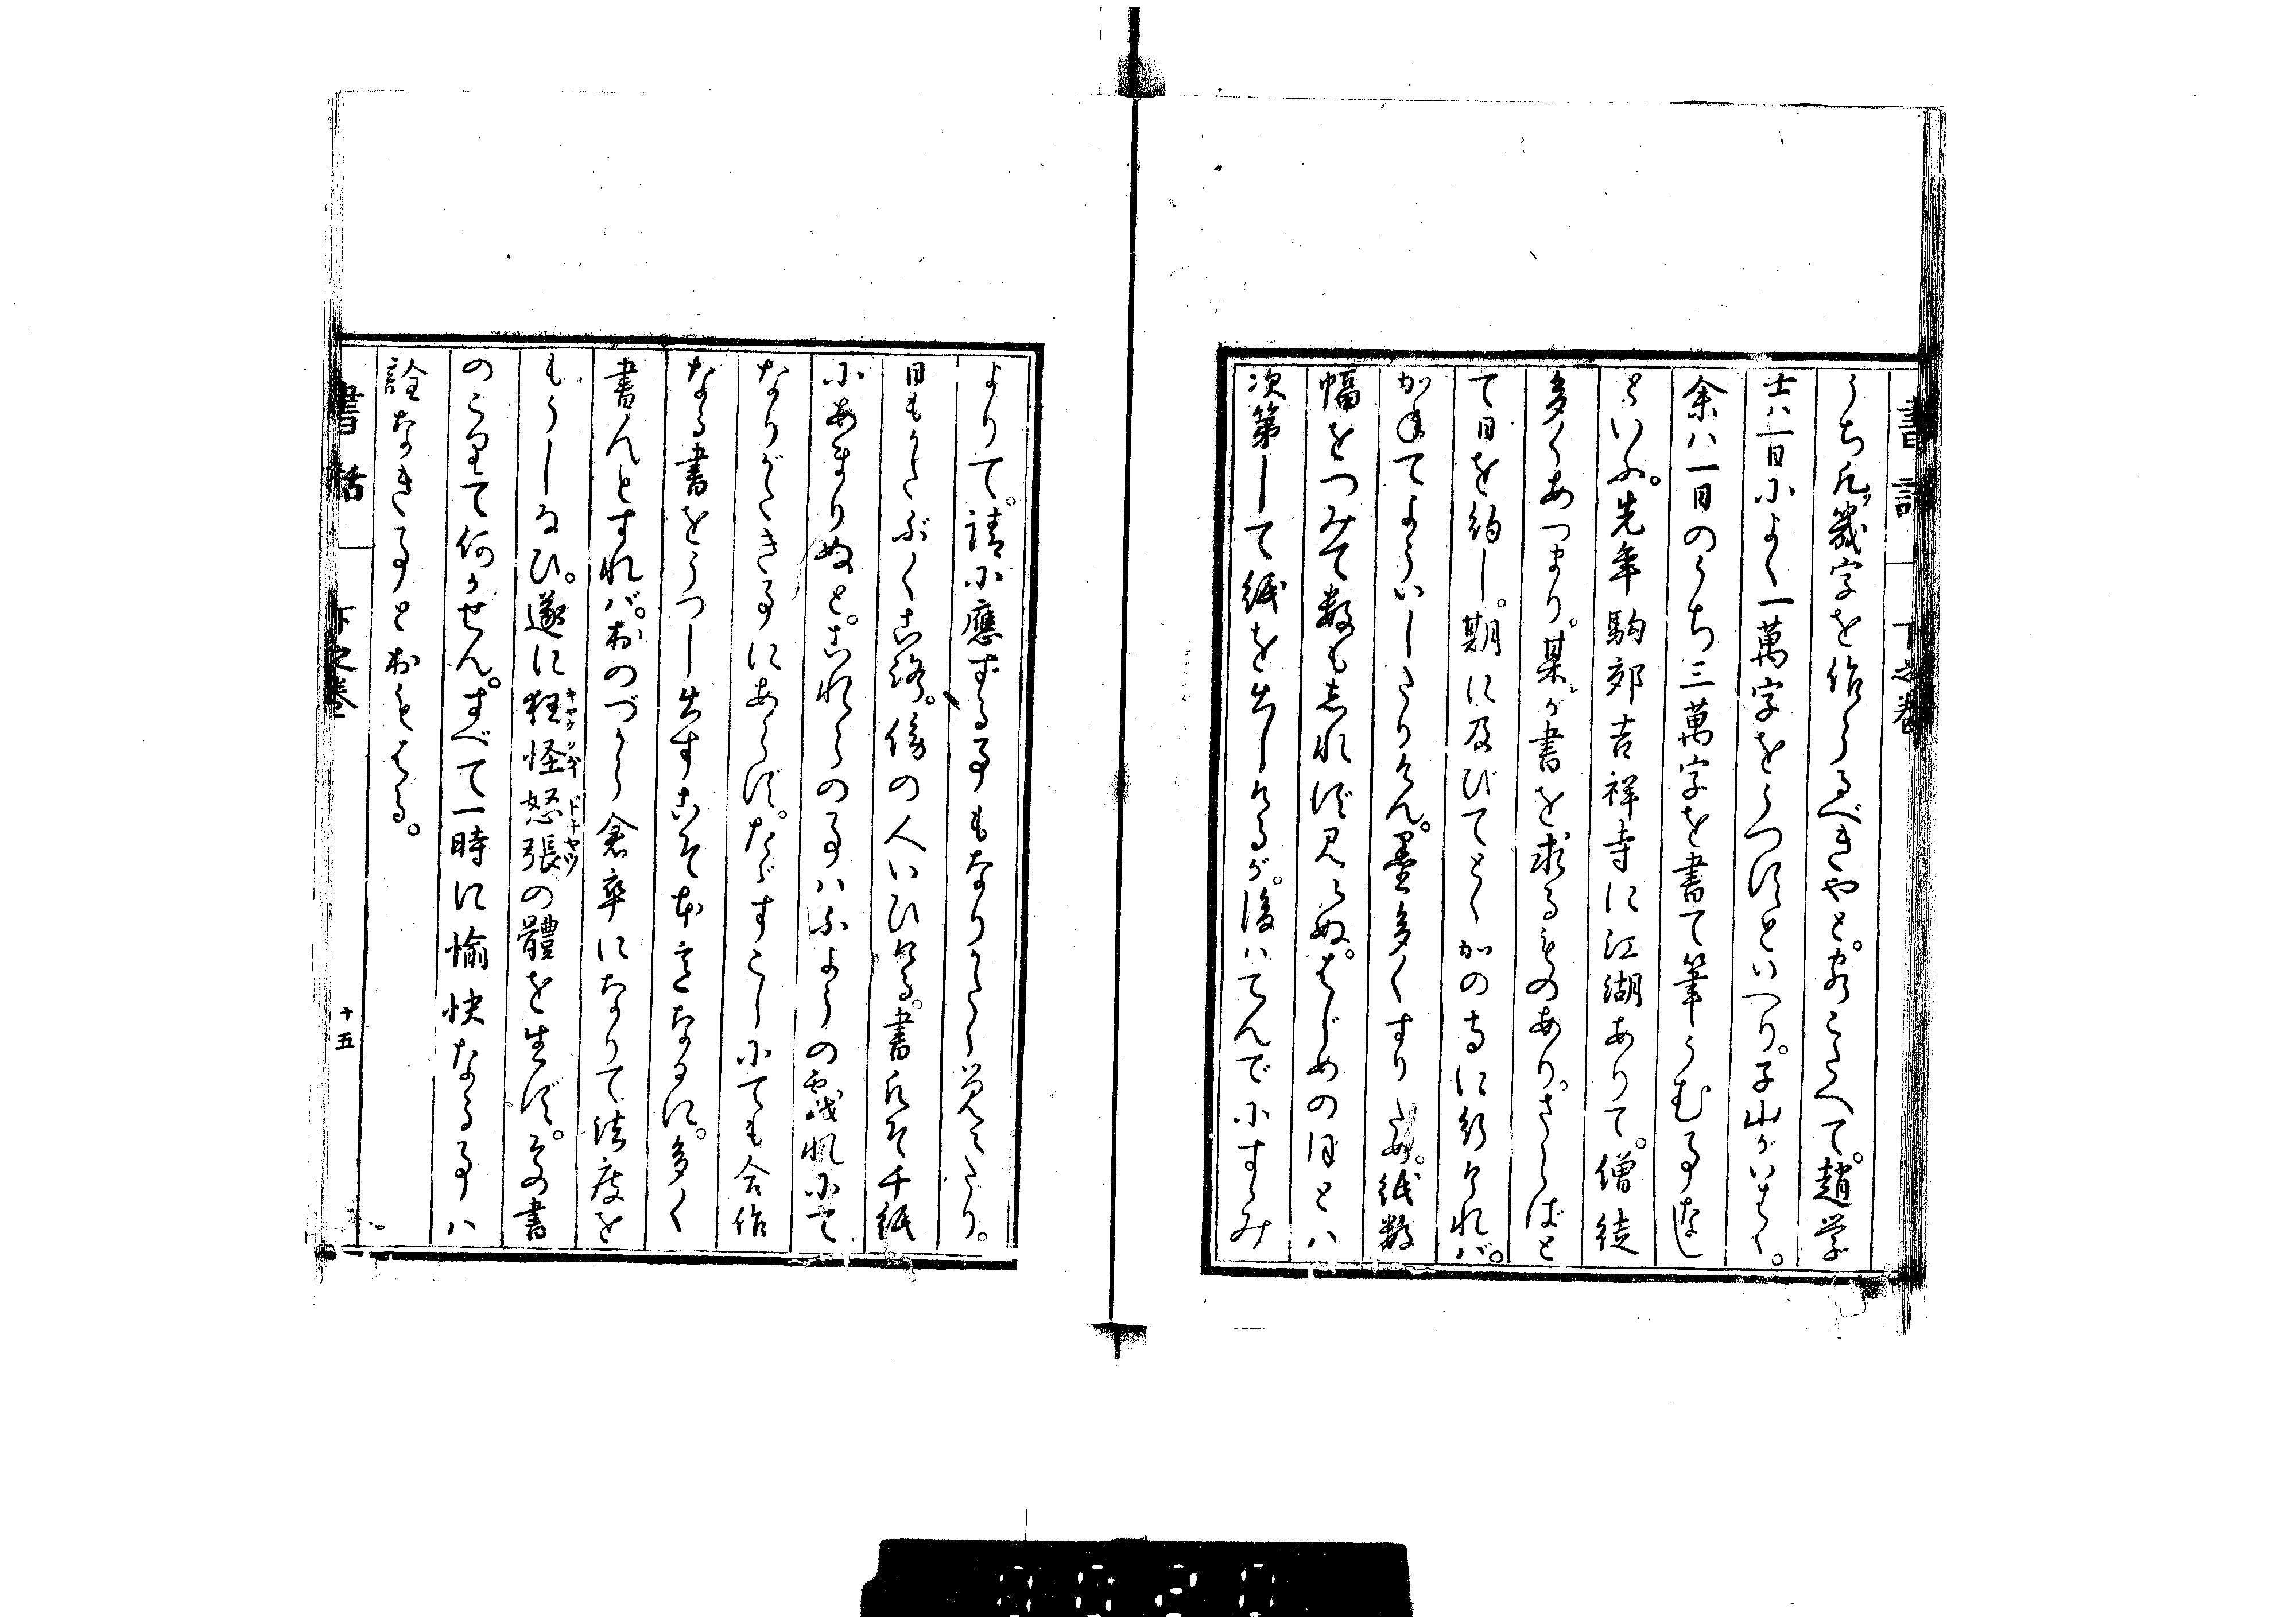 書話 下之巻
うち凡幾字を作らるべきやと。客こたへて。趙学
士ハ一日によく一萬字をうつすといへり。子山がいはく。
余ハ一日のうち三萬字を書て筆うむ事なし
といふ。先年駒郊吉祥寺に江湖ありて。僧徒
多くあつまり。某が書を求るものあり。さらばと
て日を約し。期に及びてとくかの寺に行けれバ。
かねてよういしたりけん。墨多くすりため。紙数
幅をつみて数もしれず見えぬ。はじめのほとハ
次第して紙を出しけるが。後ハてんでにすゝみ
よりて。請に應ずる事もなりかたく覚えたり。
日もかたぶくころ。傍の人いひける。書凡そ千紙
にあまりぬと。これらの事ハふようの戯れにて
なりがたき事にあらず。たゞすこしにても合作
なる書をうつし出すこそ本意なるに。多く
書んとすれバ。おのづから倉卒になりて法度を
もうしなひ。遂に狂怪怒張の體を生ず。その書
のこりて何かせん。すべて一時に愉快なる事ハ
詮なき事とおもはる。
書話 下之巻 十五